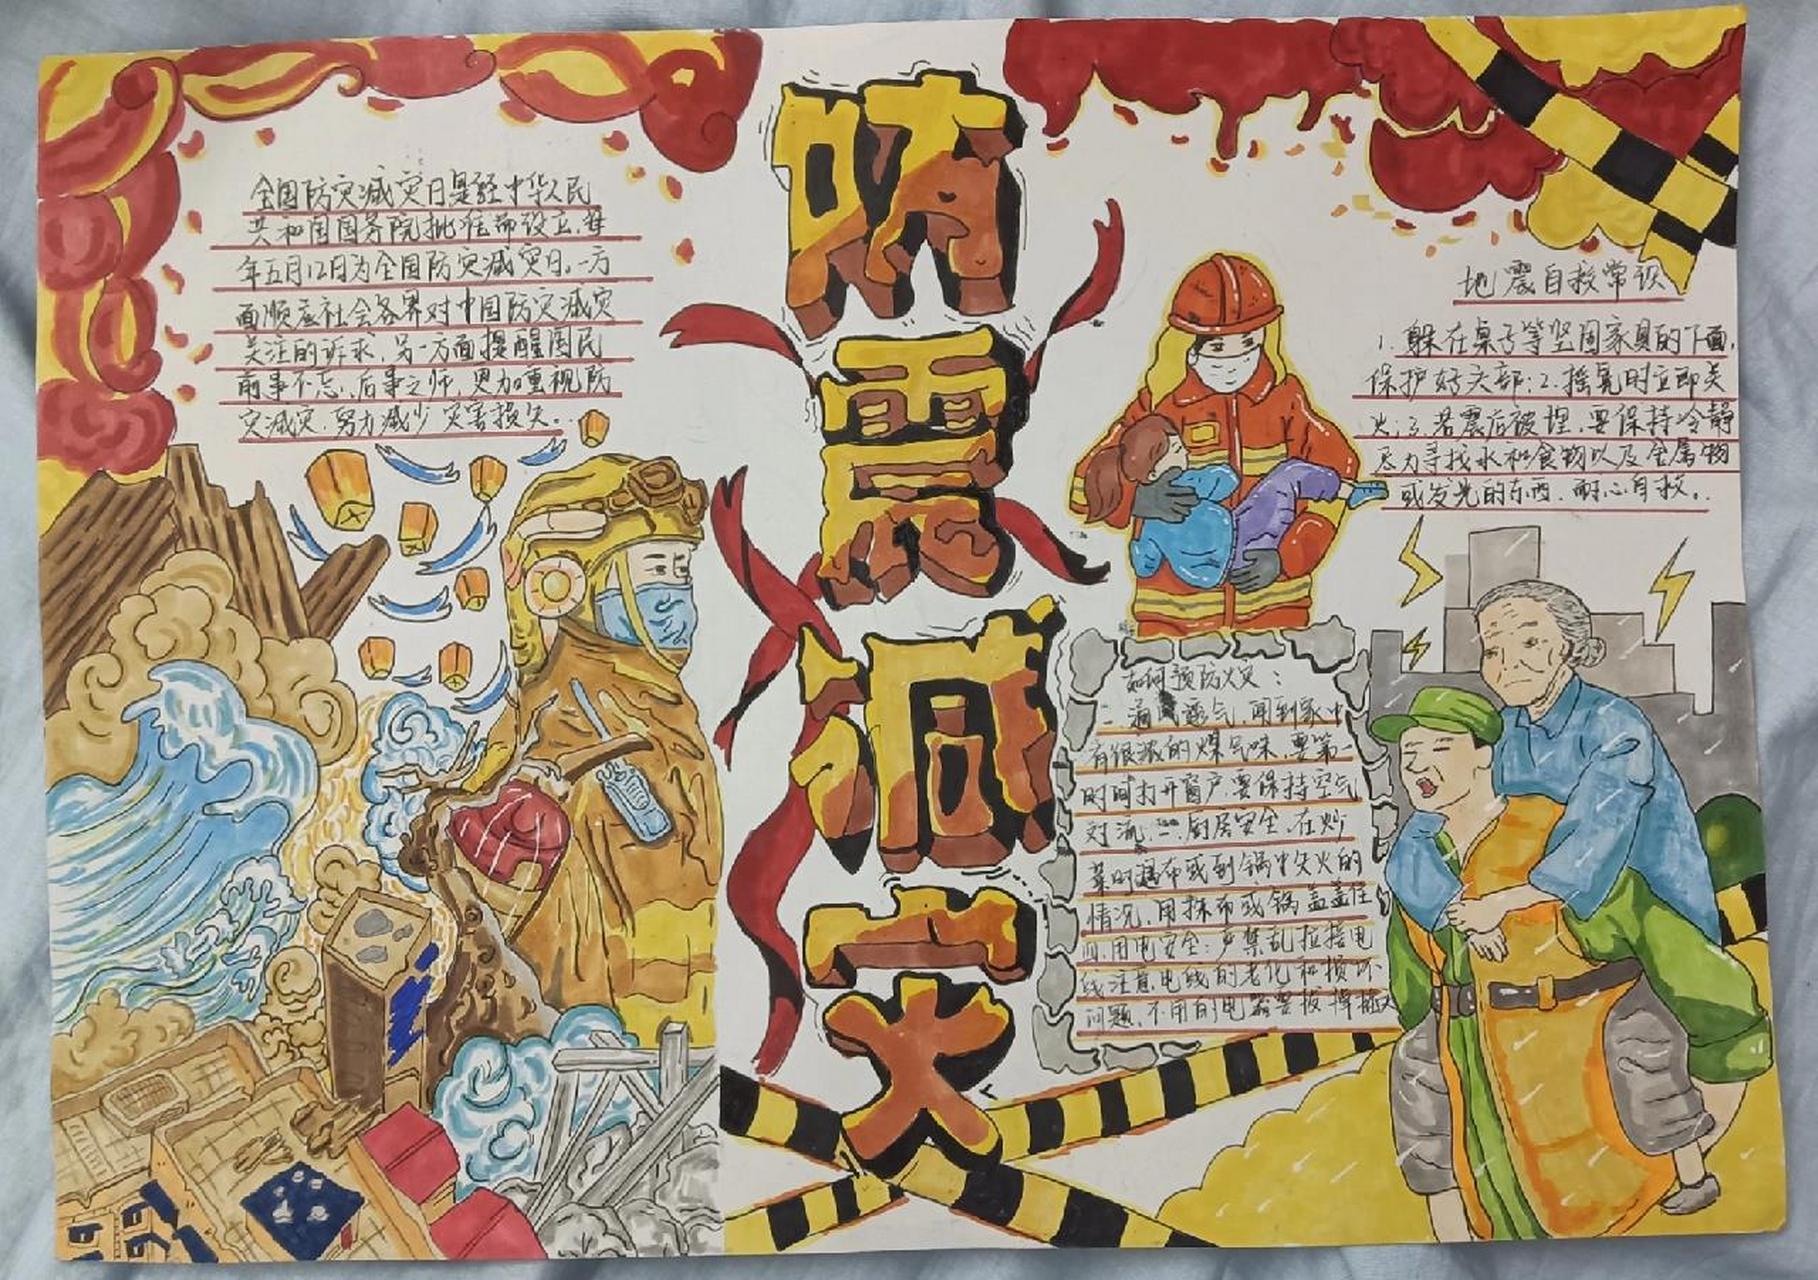 全国防灾减灾日是经中华人民
共和国国务院批准而设立,每
年五月12日为全国防灾减灾日。一方
面顺应社会各界对中国防灾减灾
关注的诉求,另一方面提醒国民
前事不忘,后事之师,更加重视防
灾减灾,努力减少灾害损失。
防
震
减
灾
地震自救常识
1.躲在桌子等坚固家具的下面,
保护好头部;2.摇晃时立即关
火;3.若震后被埋,要保持冷静
尽力寻找水和食物以及金属物
或发光的东西,耐心自救。
如何预防火灾:
一.通风透气,闻到家中
有很浓的煤气味,要第一
时间打开窗户,要保持空气
对流,二.厨房安全,在炒
菜时遇布或到锅中失火的
情况,用抹布或锅盖盖住
四.用电安全:严禁乱拉接电
线注意电线的老化和损坏
问题,不用的电器要拔掉插头